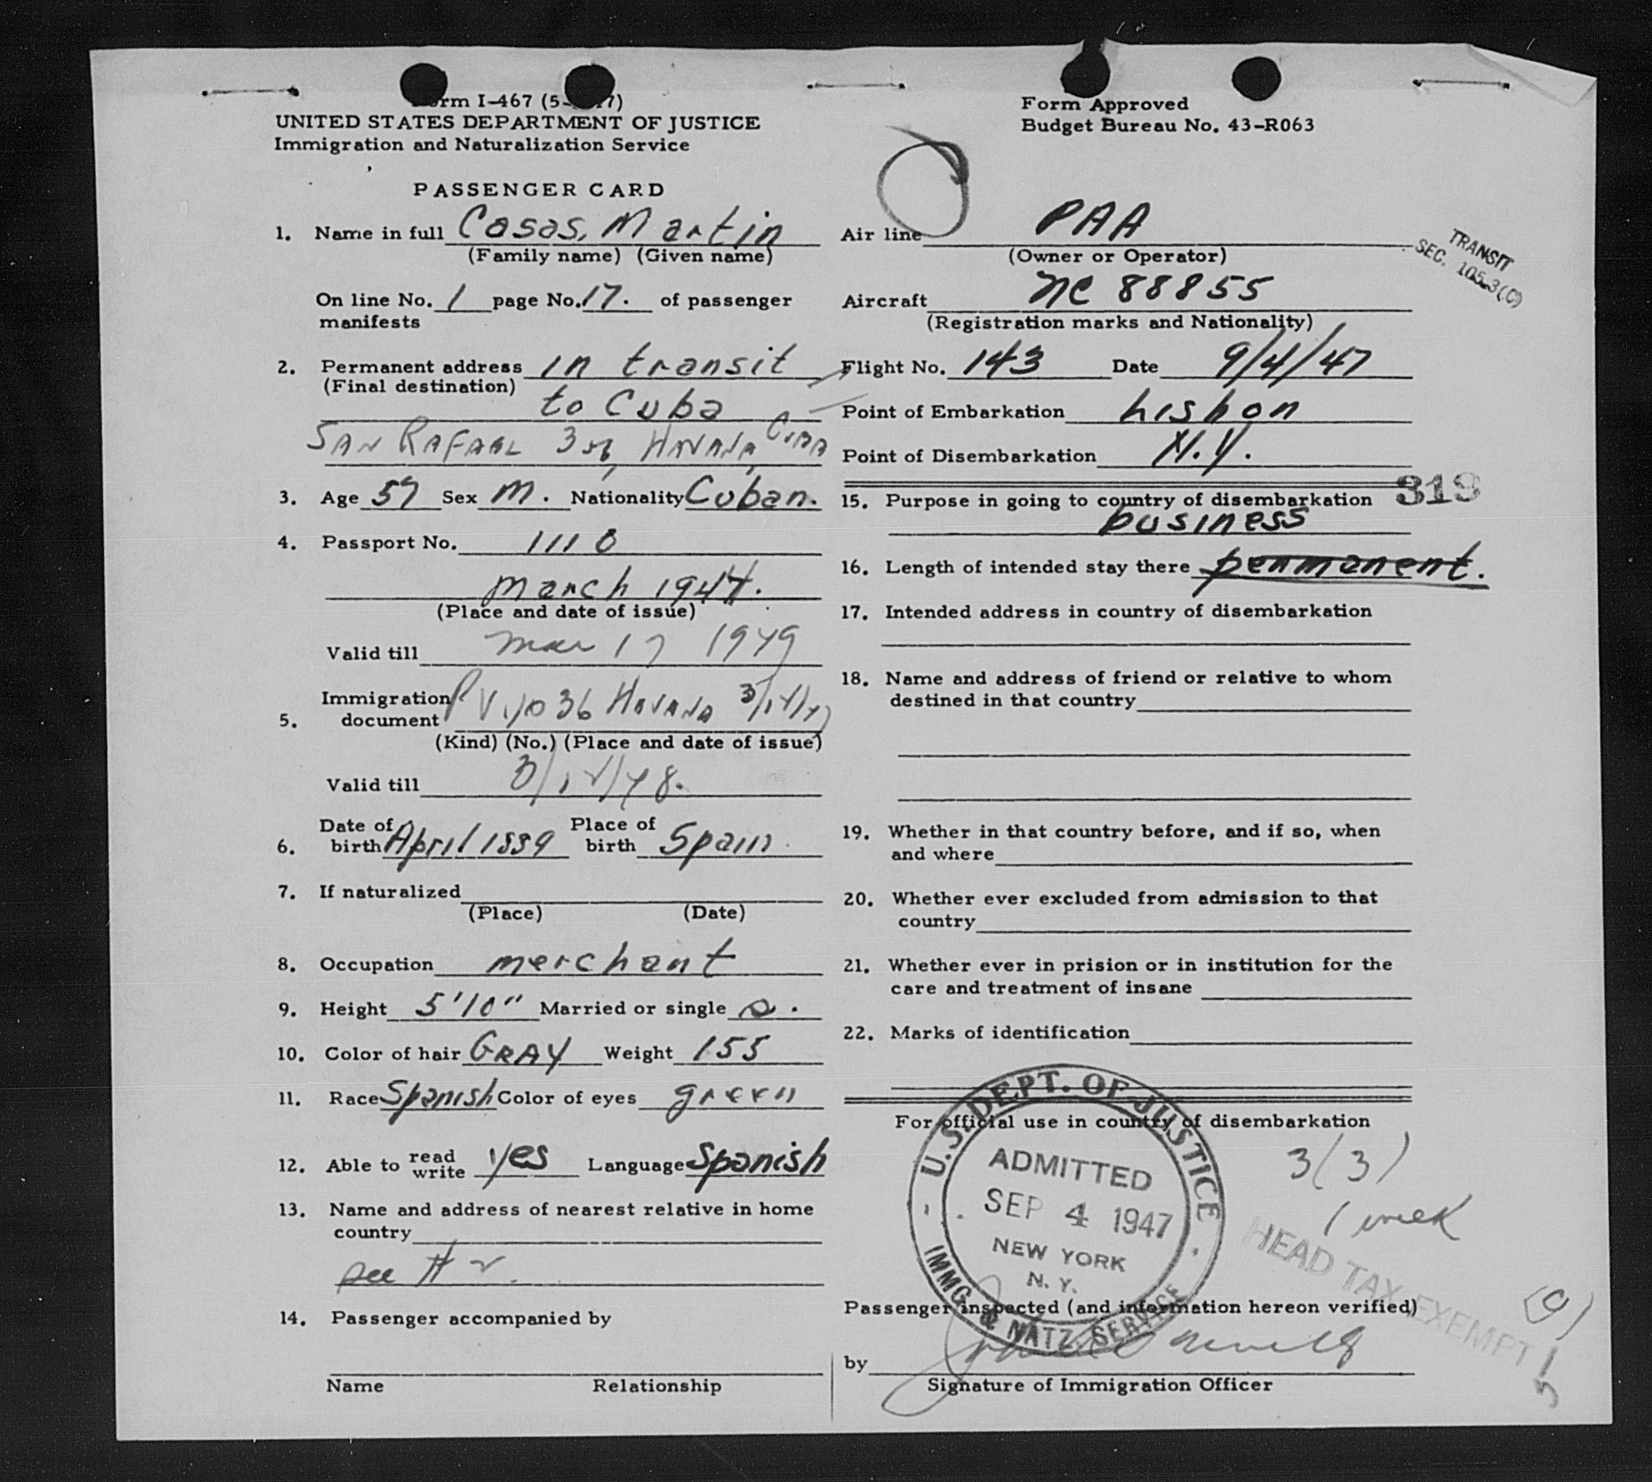 Form I-467 (5-  7)
UNITED STATES DEPARTMENT OF JUSTICE
Immigration and Naturalization Service
PASSENGER CARD
1. Name in full Casas, Martin
(Family name) (Given name)
On line No. 1 page No. 17. of passenger
manifests
2. Permanent address in transit
(Final destination)
to Cuba
SAN RAFAEL HAVANA CUBA
3. Age 57 Sex M. Nationality Cuban.
4. Passport No. 1110
March 1944.
(Place and date of issue)
Valid till Mar 17 1949
Immigration
5. document HAVANA
(Kind) (No.) (Place and date of issue)
Valid till
Date of Place of
6. birth April 1889 birth Spain
7. If naturalized
(Place) (Date)
8. Occupation merchant
9. Height 5'10" Married or single s.
10. Color of hair GRAY Weight 155
11. Race Spanish Color of eyes green
12. Able to read write yes Language Spanish
13. Name and address of nearest relative in home
country
see # 2.
14. Passenger accompanied by
Name Relationship
Form Approved
Budget Bureau No. 43-R063
Air line PAA
(Owner or Operator)
TRANSIT
SEC. 105.3(C)
Aircraft NC 88855
(Registration marks and Nationality)
Flight No. 143 Date 9/4/47
Point of Embarkation Lisbon
Point of Disembarkation N.Y.
319
15. Purpose in going to country of disembarkation
business
16. Length of intended stay there permanent.
17. Intended address in country of disembarkation
18. Name and address of friend or relative to whom
destined in that country
19. Whether in that country before, and if so, when
and where
20. Whether ever excluded from admission to that
country
21. Whether ever in prision or in institution for the
care and treatment of insane
22. Marks of identification
For official use in country of disembarkation
U.S. DEPT. OF JUSTICE
ADMITTED
SEP 4 1947
NEW YORK
N. Y.
IMMG. & NATZ. SERVICE
3(3)
1 week
HEAD TAX EXEMPT
(C)
Passenger inspected (and information hereon verified)
by
Signature of Immigration Officer